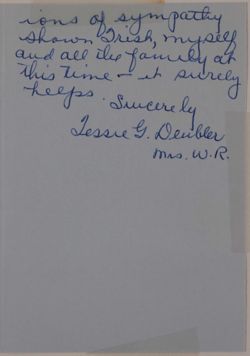 ions of sympathy
shown Trish, myself
and all the family at
this time – it surely
helps.
Sincerely
Tessie G. Deubler
Mrs. W.R.